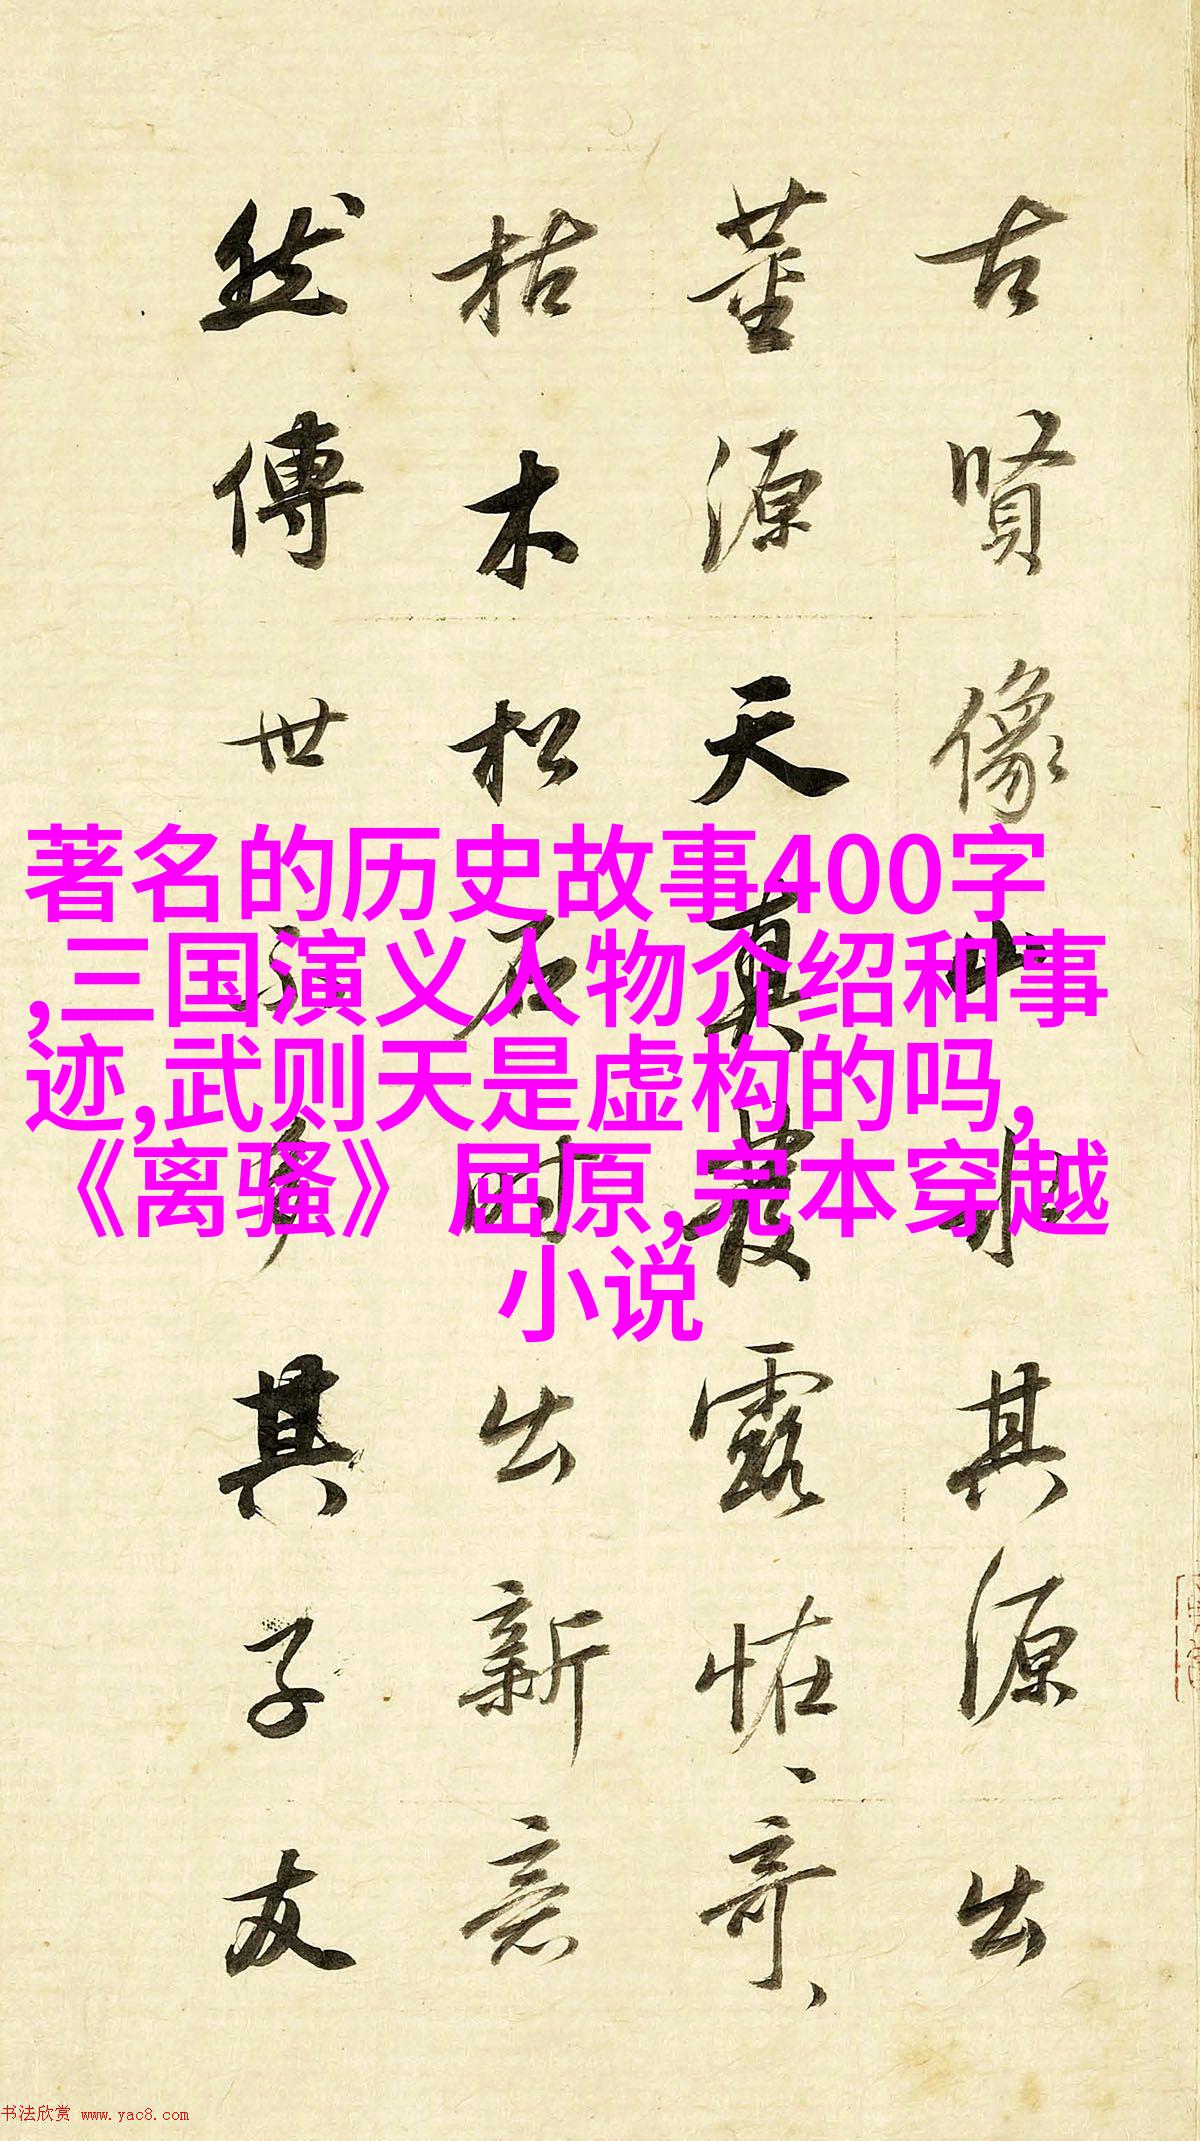 古賢像山水其源出
董源天真發露怪、奇、
枯木松石時出新意
然傳世不多其子友
著名的历史故事400字
,三国演义人物介绍和事
迹,武则天是虚构的吗,
《离骚》 屈原,完本穿越
小说
书法欣赏 www.yac8.com